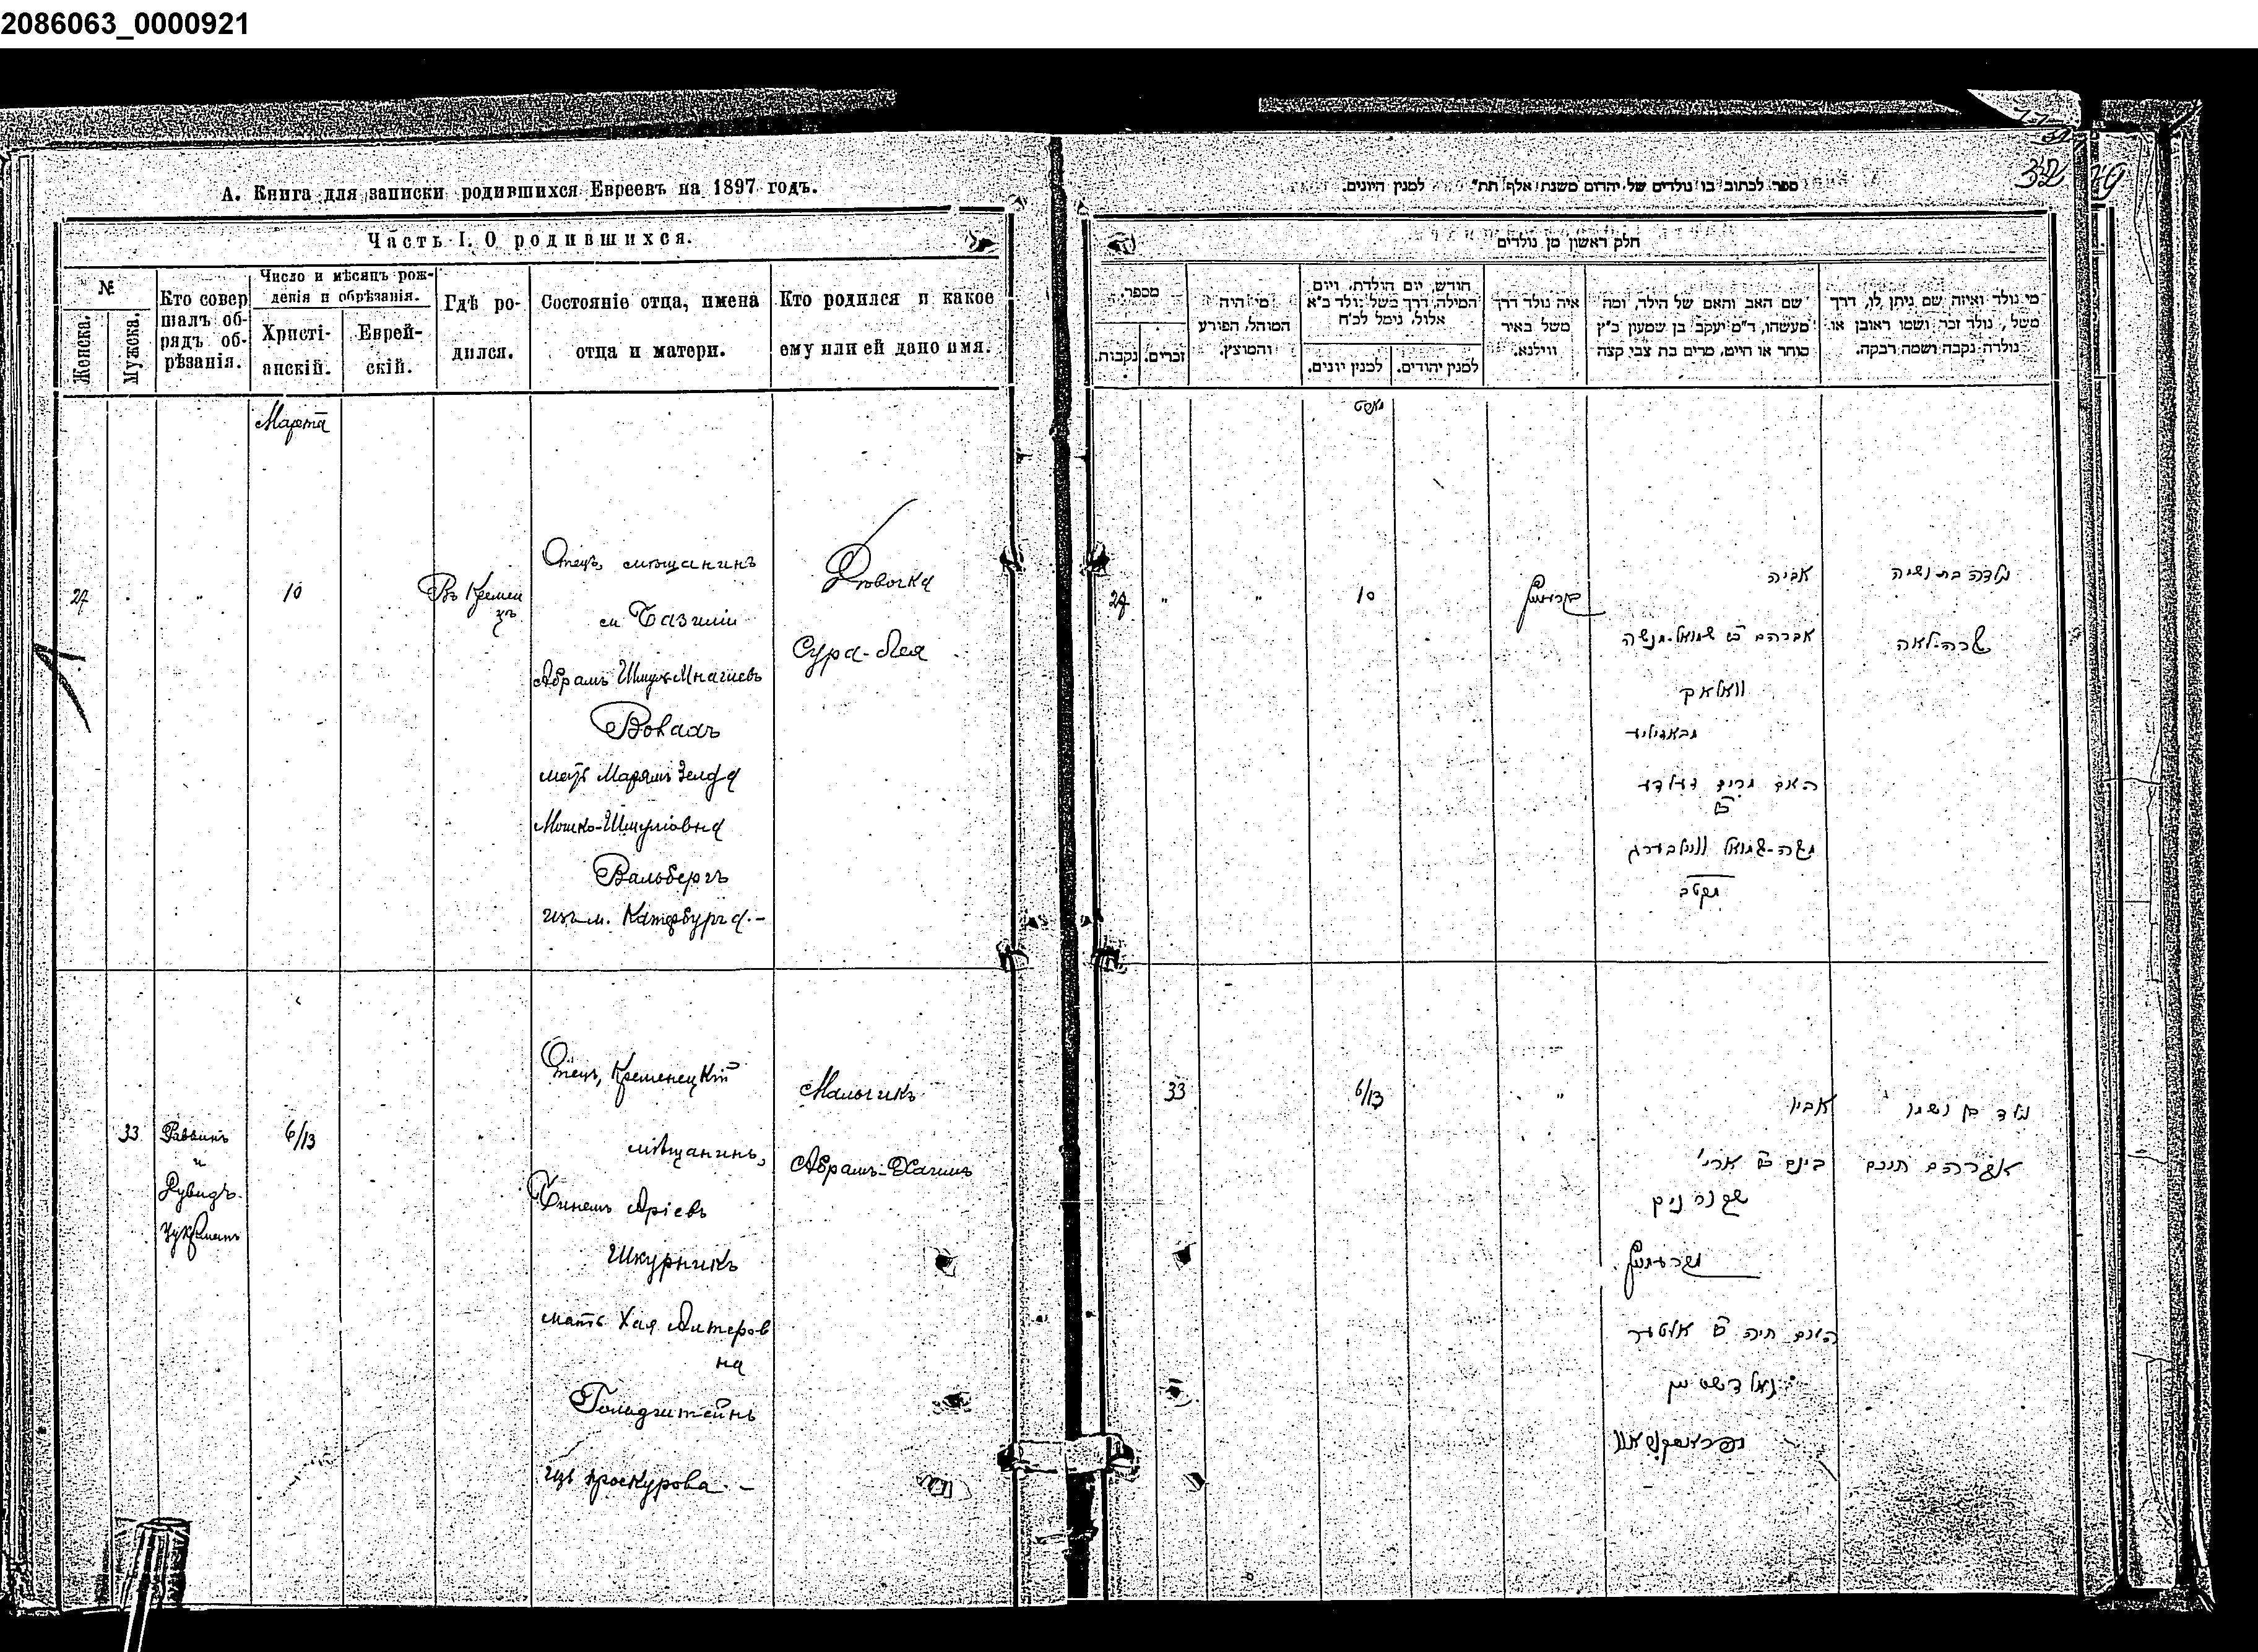 2086063_0000921
32
А. Книга для записки родившихся Евреевъ на 1897 годъ.
Часть I. О родившихся.
№
Женска.
Мужска.
Кто совершалъ обрядъ обрѣзанія.
Число и мѣсяцъ рожденія и обрѣзанія.
Христіанскій.
Еврейскій.
Гдѣ родился.
Состояніе отца, имена отца и матери.
Кто родился и какое ему или ей дано имя.
Марта
10
Въ Кременцѣ
Отецъ, мѣщанинъ
м Базиліи
Абрамъ Шмуль
Волахъ
мать Маріямъ Зелда
Мошко-Шмуліовна
Вальбергъ
изъ м. Катербурга.-
Дѣвочка
Сура-Лея
33
Раввинъ
и
6/13
Отецъ, Кременецкій
мѣщанинъ,
Бинемъ Аріевъ
Шкурникъ
мать Хая Алтеров
на
Гольдштейнъ
изъ Проскурова.-
Мальчикъ
Абрамъ-Хаимъ
ספר לכתוב בו נולדים של יהדום משנת אלף תת״ למנין היונים.
חלק ראשון מן נולדים
מספר.
נקבות.
זכרים.
מי היה המוהל, הפורע והמוצץ.
חודש, יום הולדת, ויום המילה, דרך משל נולד כ״א אלול, נימל לכ״ח
למנין יונים.
למנין יהודים.
איה נולד דרך משל באיר ווילנא.
שם האב והאם של הילד, ומה מעשהו, ד״מ יעקב בן שמעון כ״ץ סוחר או חייט, מרים בת צבי קצה
מי נולד ואיזה שם ניתן לו, דרך משל, נולד זכר ושמו ראובן או נולדה נקבה ושמה רבקה.
מארט
10
אביה
אברהם שמואל-מנשה
וואלאך
האם מרים זעלדע
משה-שמואל וואלבערג
נולדה בת ושמה
שרה-לאה
33
6/13
אביו
בינם ארי'
האם חיה אלטער
גאלדשטיין
נולד בן ושמו
אברהם חיים